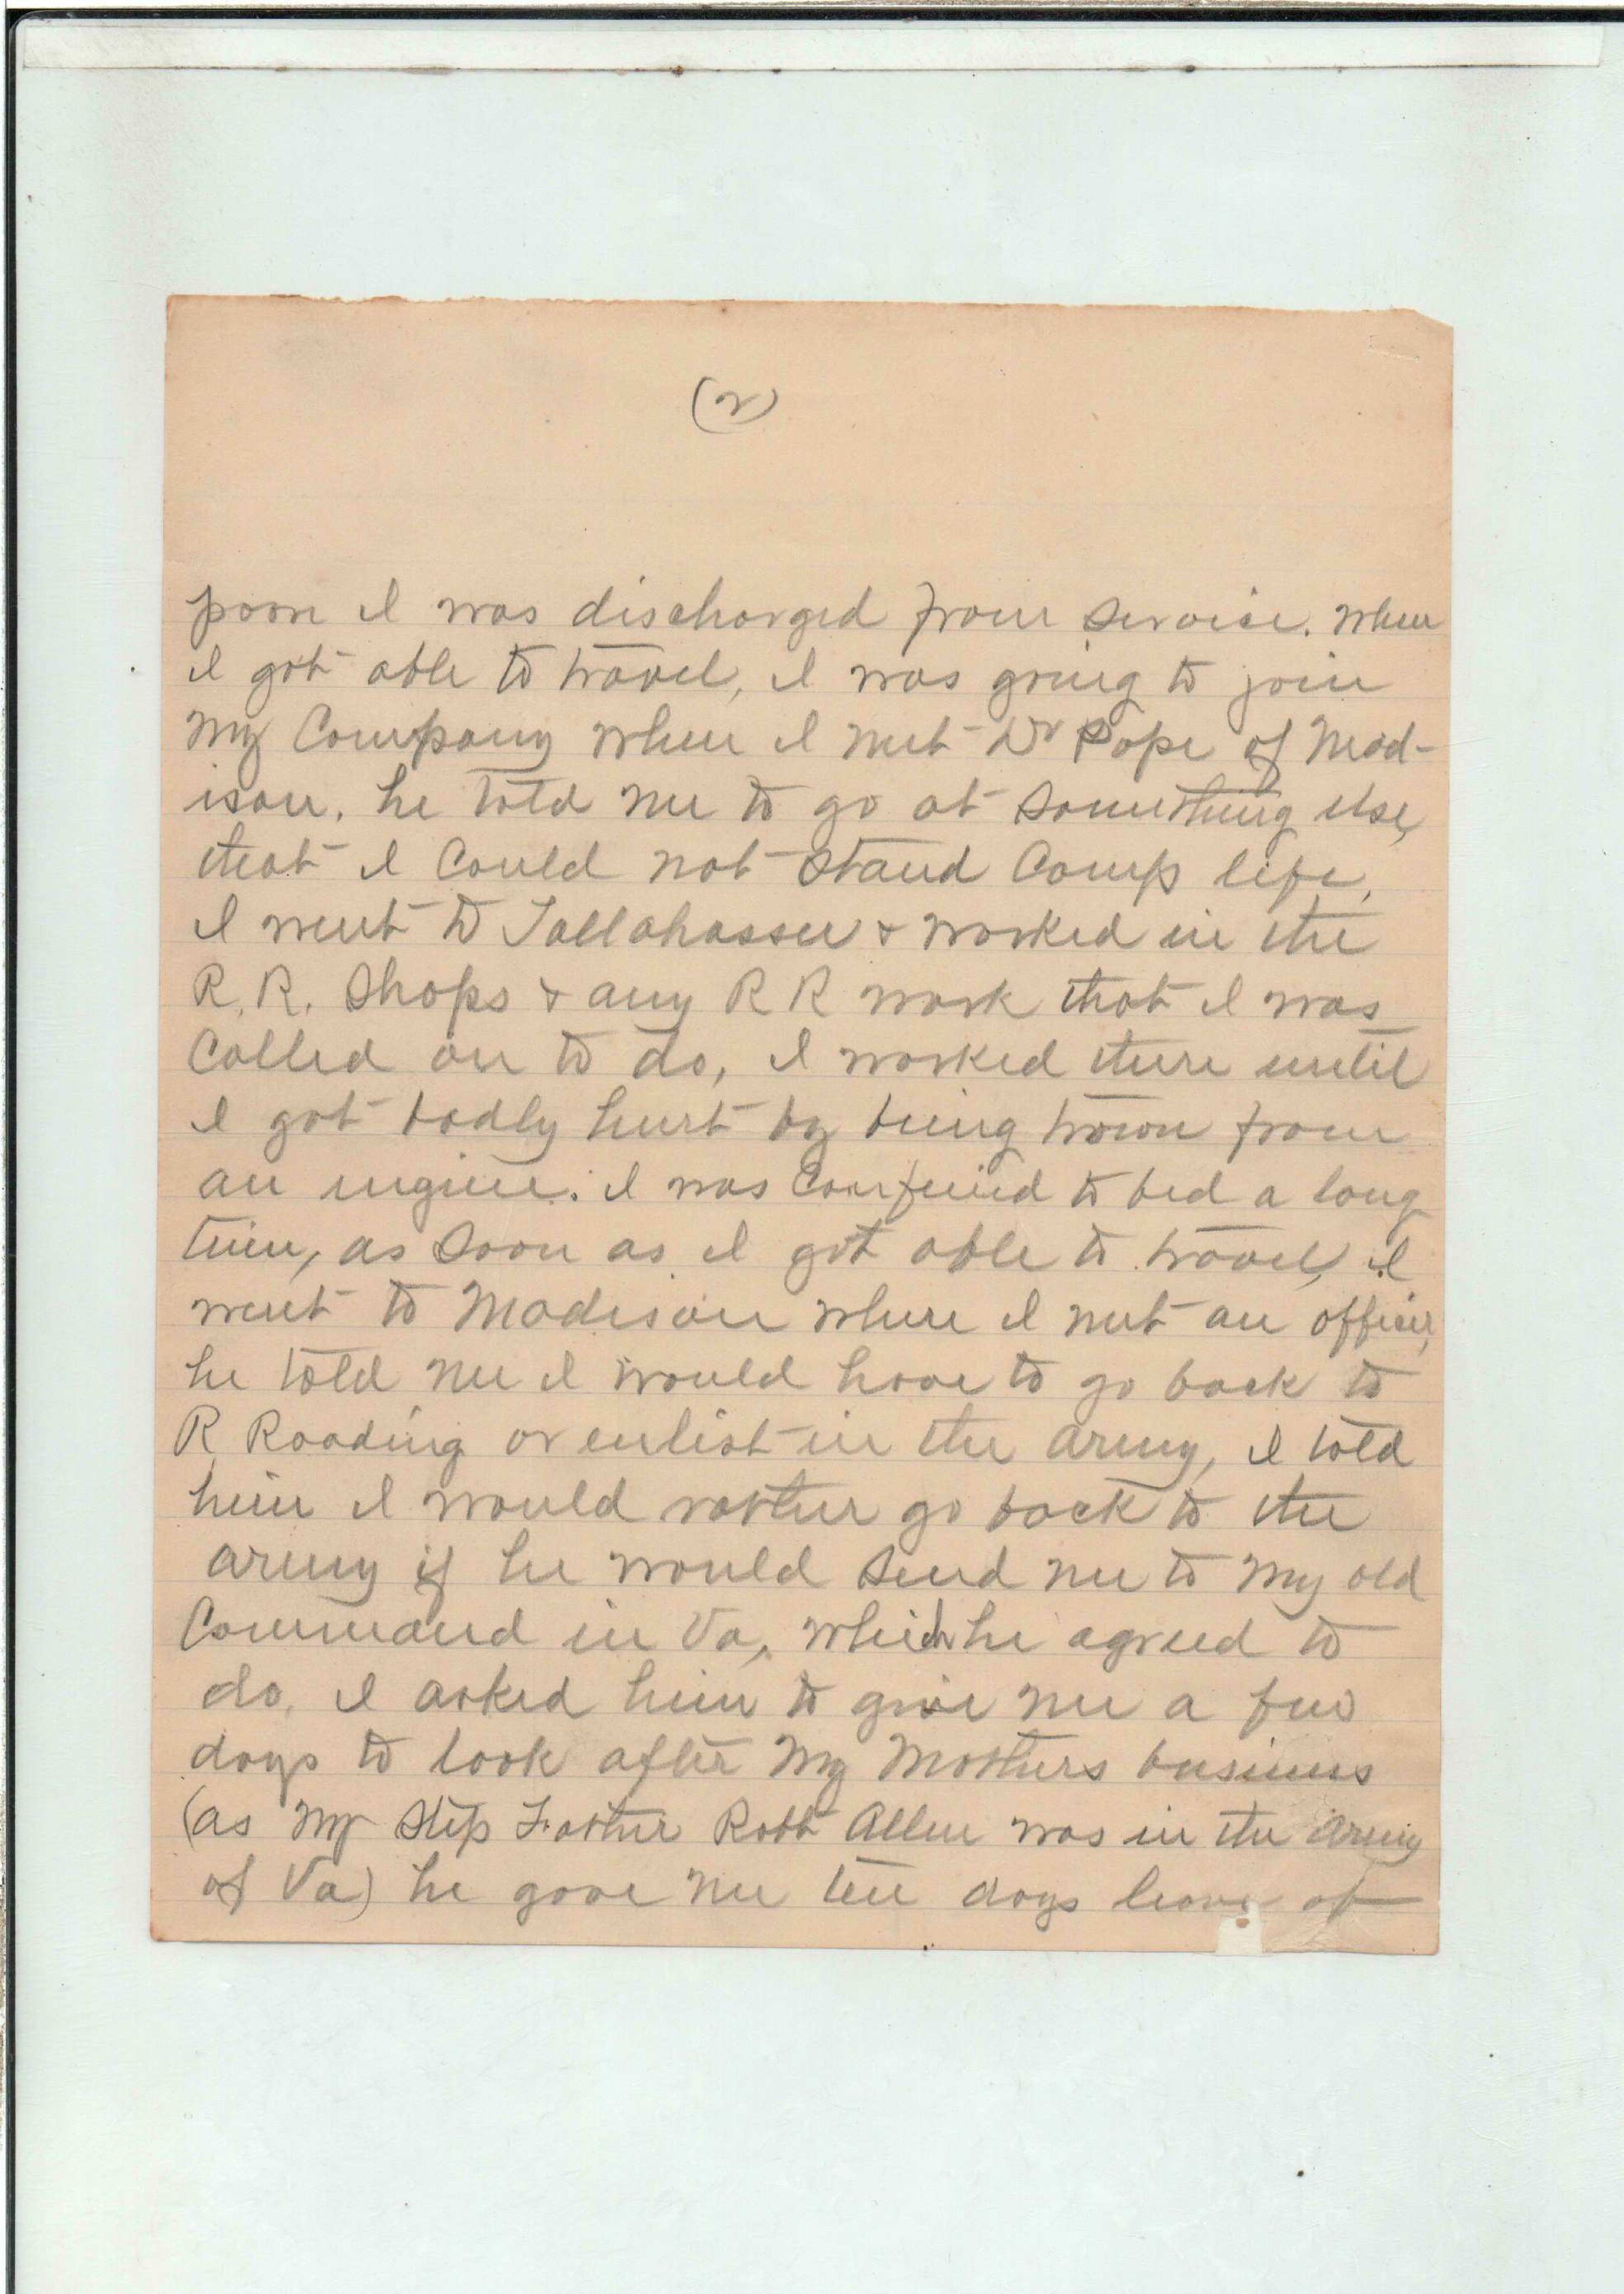 (2)
poor I was discharged from service. When
I got able to travel, I was going to join
my Company when I met Dr Pope of Mad-
ison. he told me to go at something else,
that I could not stand Camp life,
I went to Tallahassee & worked in the
R. R. Shops & any R R work that I was
Called on to do, I worked there until
I got badly hurt by being trown from
an engine. I was confined to bed a long
time, as soon as I got able to travel, I
went to Madison where I met an officer,
he told me I would have to go back to
R Roading or enlist in the army, I told
him I would rather go back to the
army if he would send me to my old
Command in Va, which he agreed to
do. I asked him to give me a few
days to look after my Mothers business
(as my Step Father Robt Allen was in the army
of Va) he gave me ten days leave of